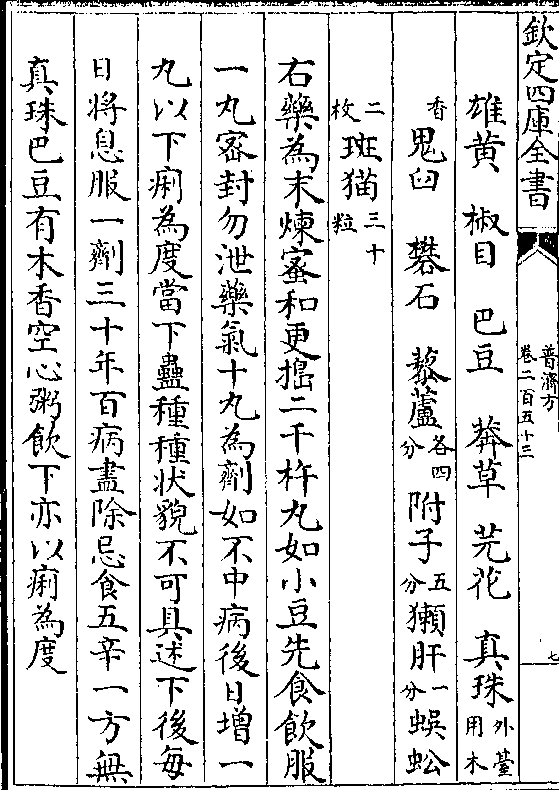 欽定四庫全書
普濟方
卷二百五十三
七
雄黄 椒目 巴豆 莽草 芫花 真珠外臺用木
香 鬼臼 礬石 藜蘆各四分 附子五分 獺肝一分 蜈蚣
二枚 斑猫三十粒
右藥為末煉蜜和更搗二千杵丸如小豆先食飲服
一丸密封勿泄藥氣十丸為劑如不中病後日增一
丸以下痢為度當下蠱種種状貌不可具述下後每
日將息服一劑三十年百病盡除忌食五辛一方無
真珠巴豆有木香空心粥飲下亦以痢為度